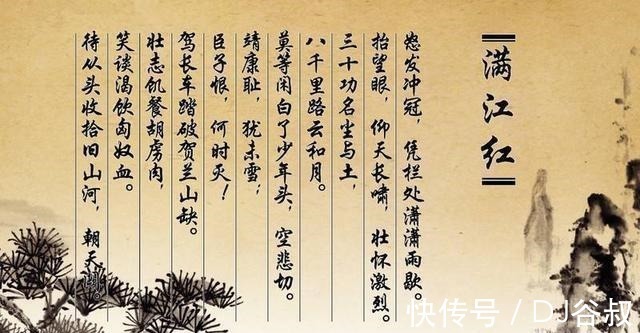 满江红
怒发冲冠，凭栏处潇潇雨歇。
抬望眼，仰天长啸，壮怀激烈。
三十功名尘与土，
八千里路云和月。
莫等闲白了少年头，空悲切。
靖康耻，犹未雪；
臣子恨，何时灭！
驾长车踏破贺兰山缺。
壮志饥餐胡虏肉，
笑谈渴饮匈奴血。
待从头收拾旧山河，朝天阙。
快传号 / DJ谷叔